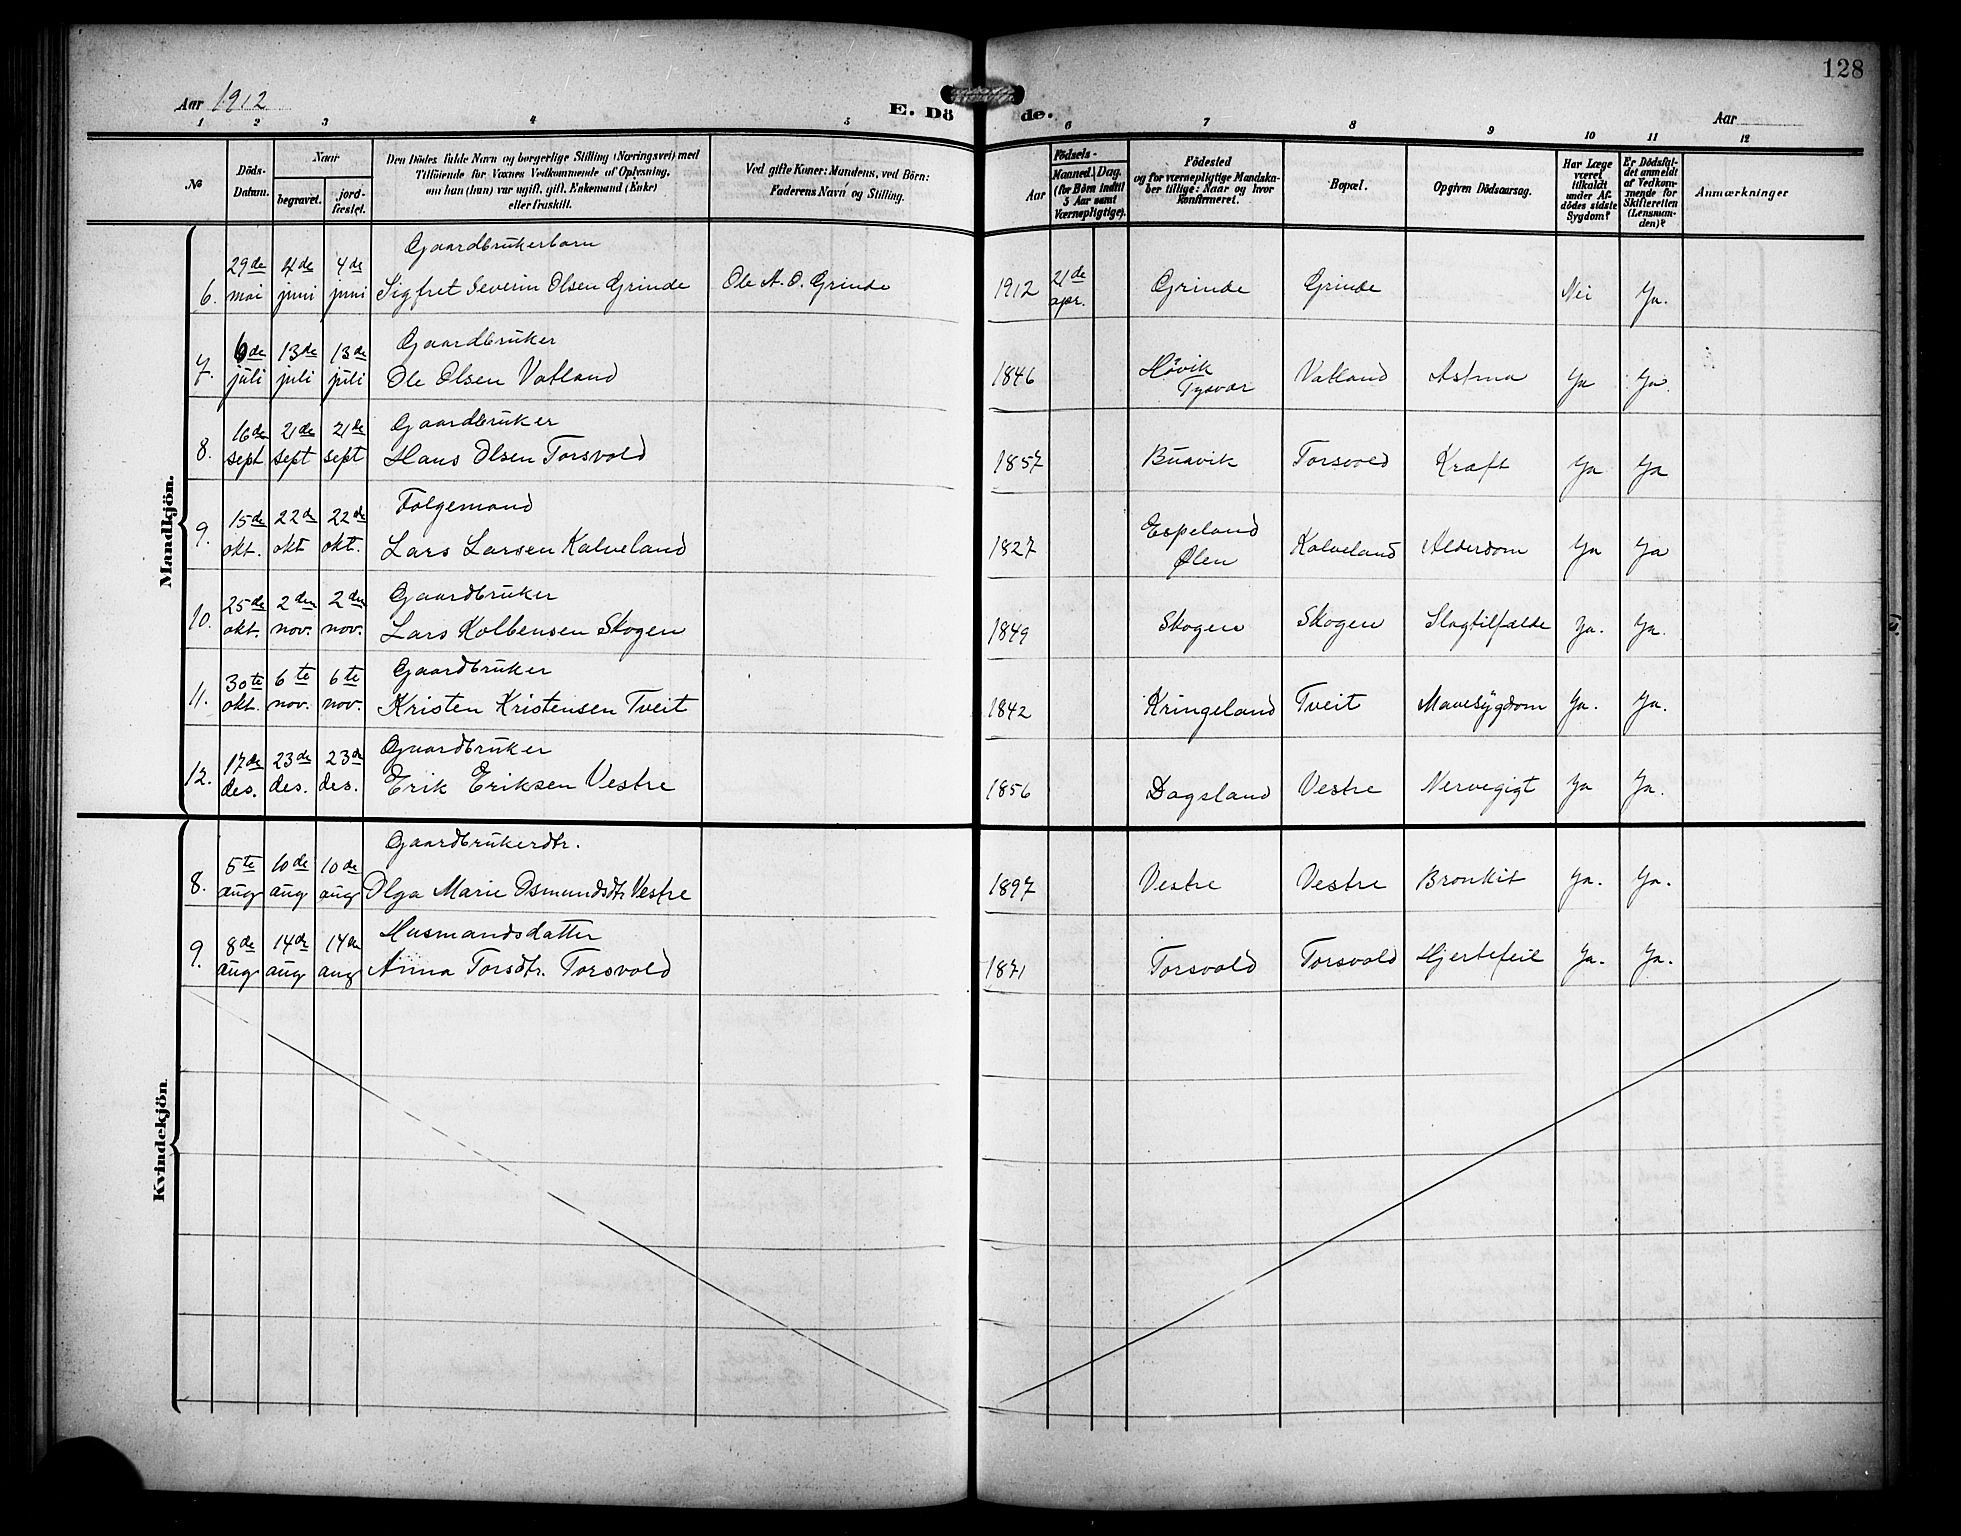 128
Aar 1912
E. Dö de.
Aar
1 2 3 4 5 6 7 8 9 10 11 12
№
Döds-
Datum.
Naar
begravet.
jord-
fæstet.
Den Dödes fulde Navn og borgerlige Stilling (Næringsvei) med
Tilföiende for Voxnes Vedkommende af Oplysning,
om han (hun) var ugift, gift, Enkemand (Enke)
eller fraskilt.
Ved gifte Koner: Mandens, ved Börn:
Faderens Navn og Stilling.
Födsels-
Aar
Maaned. Dag.
(for Börn indtil
5 Aar samt
Værnepligtige).
Födested
og for værnepligtige Mandska-
ber tillige: Naar og hvor
Konfirmeret.
Bopæl.
Opgiven Dödsaarsag.
Har Læge
været
tilkaldt
under Af-
dödes sidste
Sygdom?
Er Dödsfal-
det anmeldt
af Vedkom-
mende for
Skifteretten
(Lensman-
den)?
Anmærkninger
Mandkjön.
Gaardbrukerbarn
29de 4de 4de 21de
6. mai juni juni Sigfret Severin Olsen Grinde Ole A. O. Grinde 1912 apr. Grinde Grinde Nei Ja.
6de 13de 13de Gaardbruker Hövik
7. juli juli juli Ole Olsen Vatland 1846 Tysvær Vatland Astma Ja Ja.
16de 21de 21de Gaardbruker
8. sept sept sept Hans Olsen Torsvold 1857 Buavik Torsvold Kræft Ja Ja
15de 22de 22de Folgemand Espeland
9. okt. okt okt. Lars Larsen Kalveland 1827 Ølen Kalveland Alderdom Ja Ja
25de 2den 2den Gaardbruker
10. okt. nov. nov. Lars Kolbensen Skogen 1849 Skogen Skogen Slagtilfælde Ja. Ja.
30te 6te 6te Gaardbruker
11. okt. nov. nov. Kristen Kristensen Tveit 1842 Kringeland Tveit Mavesygdom Ja. Ja.
17de 23de 23de Gaardbruker
12. des. des. des. Erik Eriksen Vestre 1856 Dagsland Vestre Nervegigt Ja Ja.
Kvindekjön.
5te 10de 10de Gaardbrukerdtr.
8. aug aug aug Olga Marie Osmundsdtr Vestre 1897 Vestre Vestre Bronkit Ja. Ja.
8de 14de 14de Husmandsdatter
9. aug aug aug Anna Torsdtr. Torsvold 1871 Torsvold Torsvold Hjertefeil Ja. Ja.